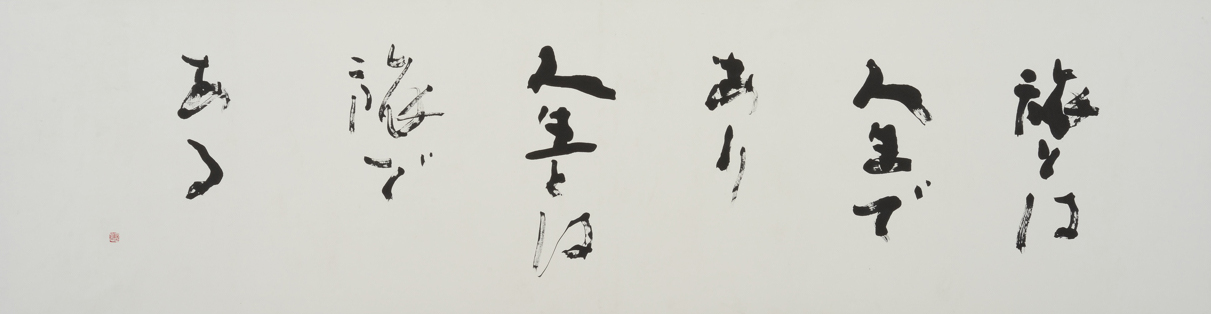 旅とは
人生で
あり
人生とは
旅で
ある